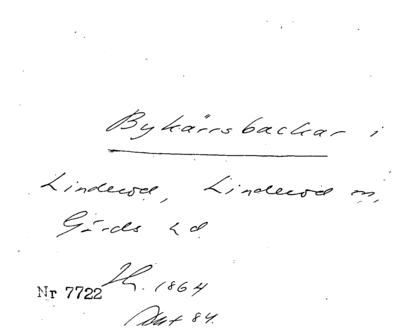 Bykärrsbackar i
Linderöd, Linderöd sn,
Gärds hd
Nr 7722 1864
84.